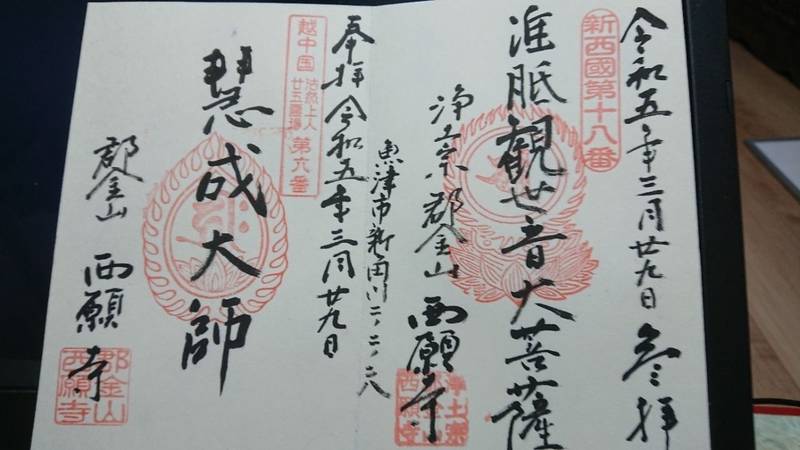 新西國第十八番
令和五年三月廿九日 参拝
准胝觀世音大菩薩
浄土宗 郡金山 西願寺
浄土宗
郡金山
西願寺
魚津市新角川二、二、六
奉拝 令和五年三月廿九日
越中国
法然上人
廿五霊場
第六番
慧成大師
郡金山 西願寺
郡金山
西願寺